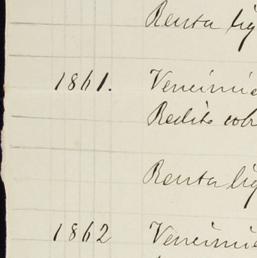 Renta liq
1861. Vencimie
Redito cobr
Renta liq
1862 Vencimie